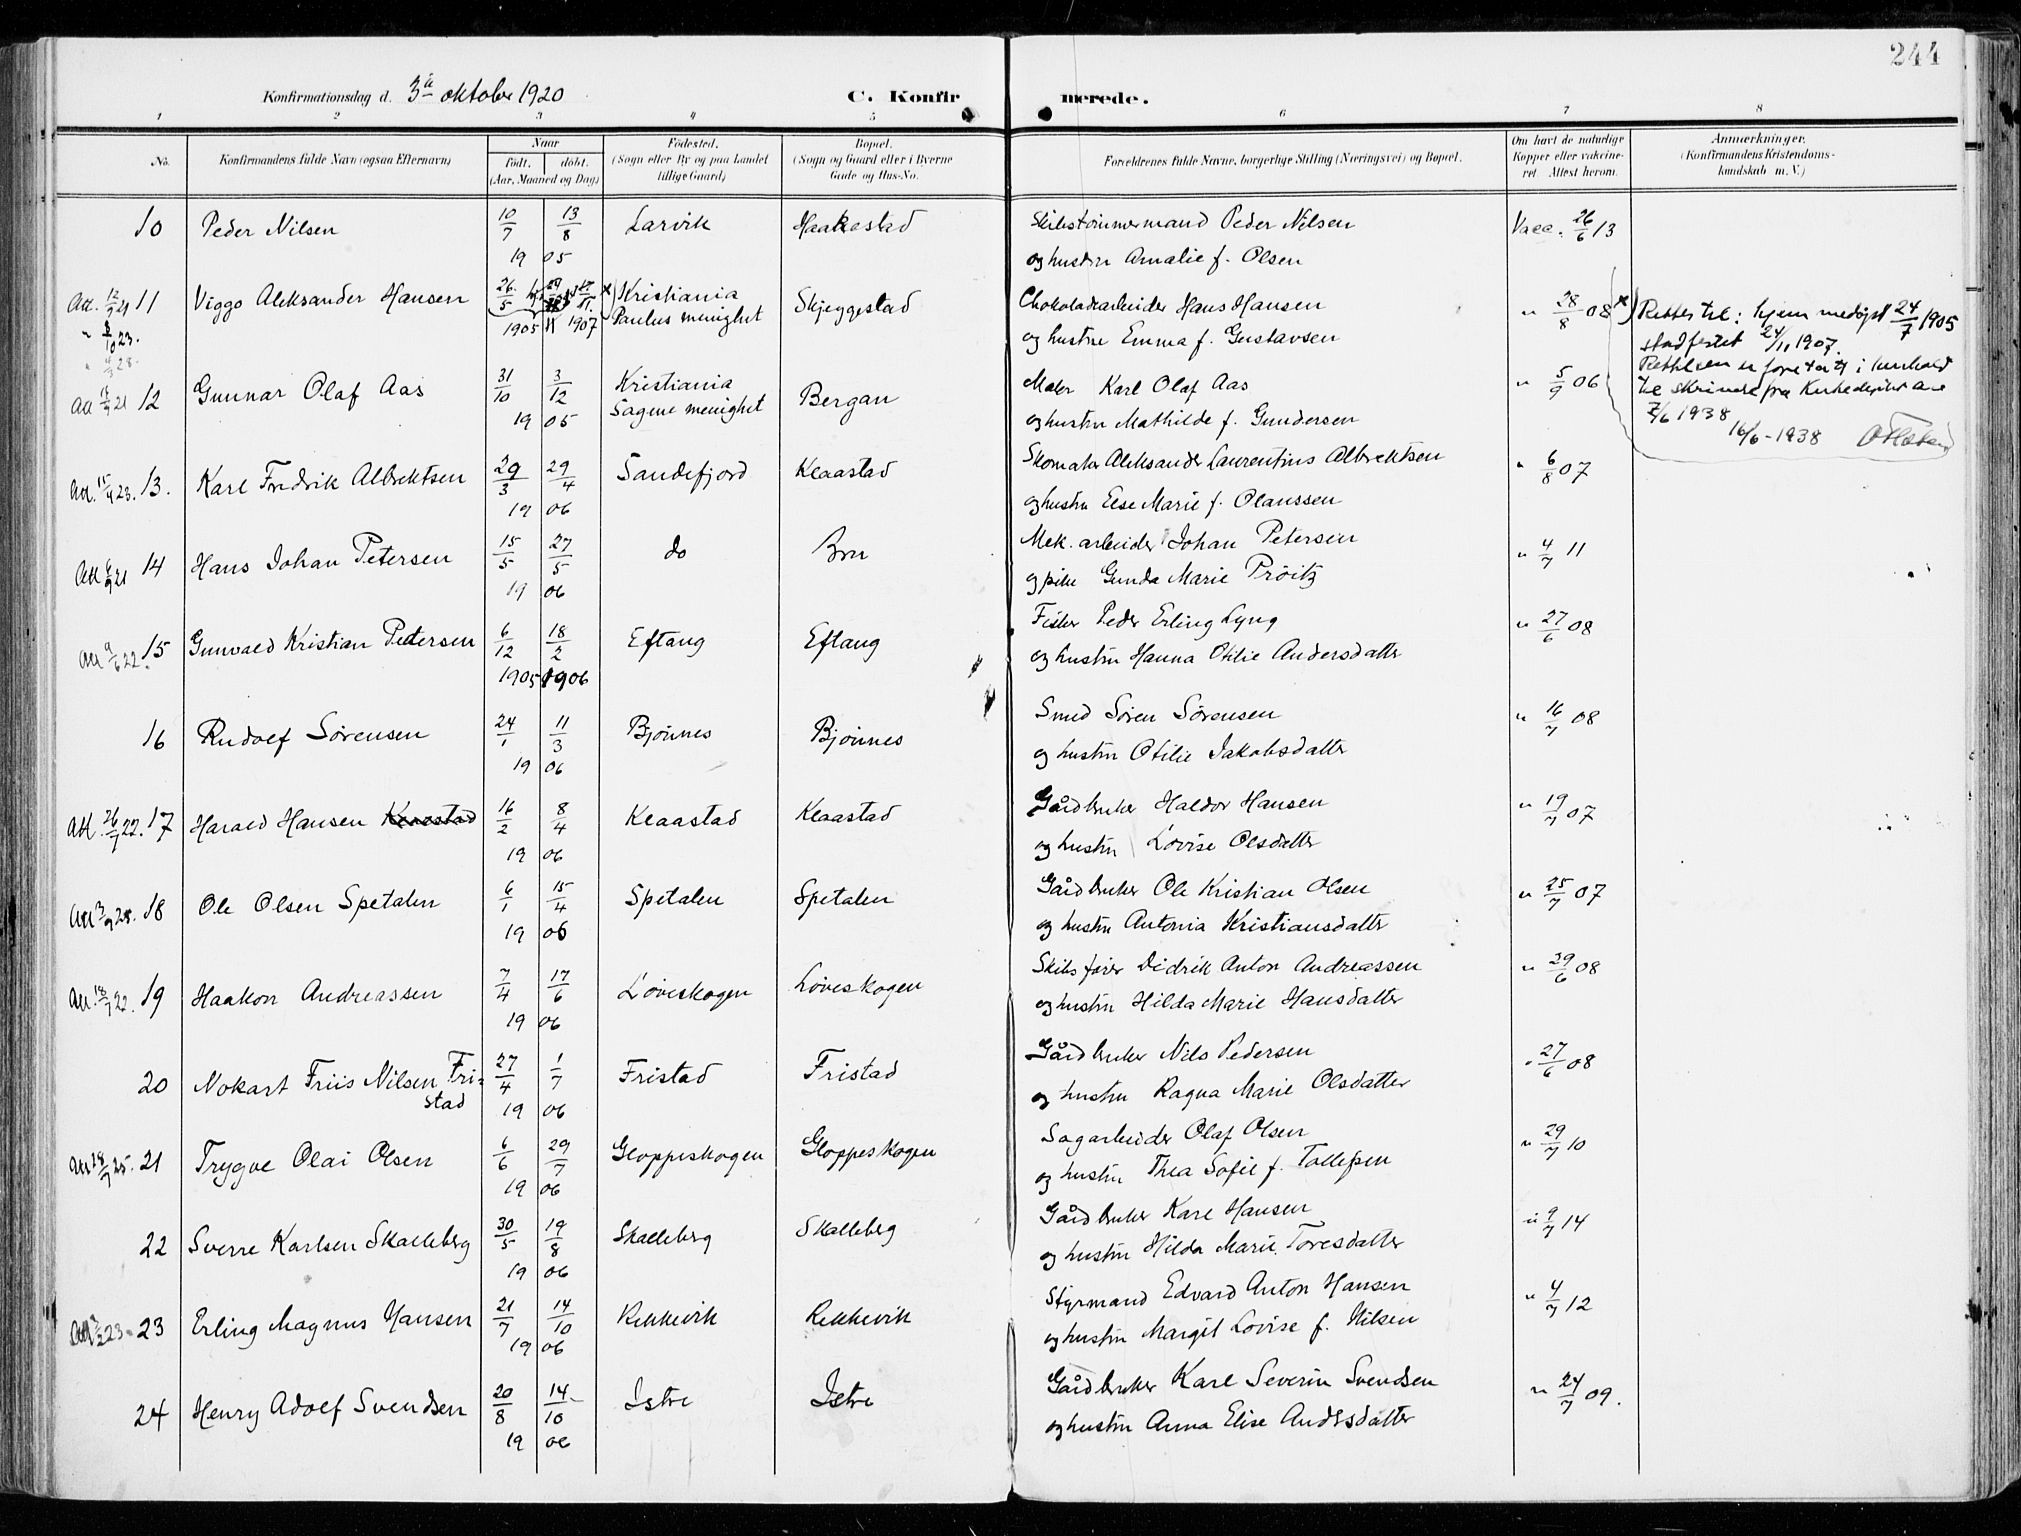 244
Konfirmationsdag d. 3die oktober 1920
C. Konfirmerede.
1 2 3 4 5 6 7 8
No. Konfirmandens fulde Navn (ogsaa Efternavn) Naar født. døbt. (Aar, Maaned og Dag) Fødested. (Sogn eller By og paa Landet tillige Gaard) Bopæl. (Sogn og Gaard eller i Byerne Gade og Hus-No. Forældrenes fulde Navne, borgerlige Stilling (Næringsvei) og Bopæl. Om havt de naturlige Kopper eller vakcineret. Attest herom. Anmærkninger. (Konfirmandens Kristendomskundskab m. V.)
10 Peder Nilsen 10/7 13/8 Larvik Haakestad Skibstømmermand Peder Nilsen Vacc. 26/6 13
19 05 og hustru Amalie f. Olsen
Att. 12/7 21 11 Viggo Aleksander Hansen 26/5 Kristiania Skjeggestad Chokoladearbeider Hans Hansen " 28/8 08 x) Rettes til: hjemmedøpt 24/7 1905
" 8/10 23. 1905 1907 Paulus menighet og hustru Emma f. Gustavsen stadfestet 24/11 1907.
Rettelsen er foretatt i henhold
til skrivelse fra Kirkedepartane
7/6 1938
16/6 - 1938
Att 21 12 Gunnar Olaf Aas 31/10 3/12 Kristiania Bergan Maler Karl Olaf Aas " 5/9 06
19 05 Sagene menighet og hustru Mathilde f. Gundersen
Att. 15/4 23. 13. Karl Fredrik Albrektsen 29/3 29/4 Sandefjord Klaastad Skomaker Aleksander Laurentius Albrektsen " 6/8 07
19 06 og hustru Else Marie f. Olaussen
Att 6/9 21 14 Hans Johan Petersen 15/5 27/5 do Bru Mek. arbeider Johan Petersen " 4/7 11
19 06 og pike Gunda Marie Prøitz
Att 9/6 22. 15 Gunvald Kristian Pedersen 6/12 18/2 Eftang Eftang Fisker Peder Erling Lyng " 27/6 08
1905 1906 og hustru Hanna Otilie Andersdatter
16 Rudolf Sørensen 24/1 11/3 Bjønnes Bjønnes Smed Søren Sørensen " 16/7 08
19 06 og hustru Otilie Jakobsdatter
Att. 26/7 22. 17 Harald Hansen Klaastad 16/2 8/4 Klaastad Klaastad Gårdbruker Haldor Hansen " 19/7 07
19 06 og hustru Lovise Olsdatter
Att 3/9 28. 18 Ole Olsen Spetalen 6/1 15/4 Spetalen Spetalen Gårdbruker Ole Kristian Olsen " 25/7 07
19 06 og hustru Antonia Kristiansdatter
Att. 18/7 22. 19 Haakon Andreassen 7/4 17/6 Løveskogen Løveskogen Skibsfører Didrik Anton Andreassen " 29/6 08
19 06 og hustru Hilda Marie Hansdatter
20 Nokart Friis Nilsen Fri= 27/4 1/7 Fristad Fristad Gårdbruker Nils Pedersen " 27/6 08
stad 19 06 og hustru Ragna Marie Olsdatter
Att 18/7 25. 21 Trygve Olai Olsen 6/6 29/7 Gloppeskogen Gloppeskogen Sagarbeider Olaf Olsen " 29/7 10
19 06 og hustru Thea Sofie f. Tollefsen
22 Sverre Karlsen Skalleberg 30/5 19/8 Skalleberg Skalleberg Gårdbruker Karl Hansen " 9/7 14
19 06 og hustru Hilda Marie Toresdatter
Att 3/2 23 23 Erling Magnus Hansen 21/7 14/10 Rekkevik Rekkevik Styrmand Edvard Anton Hansen " 4/7 12
19 06 og hustru Margit Lovise f. Nilsen
24 Henry Adolf Svendsen 20/8 14/10 Istre Istre Gårdbruker Karl Severin Svendsen " 24/7 09.
19 06 og hustru Anna Elise Andersdatter